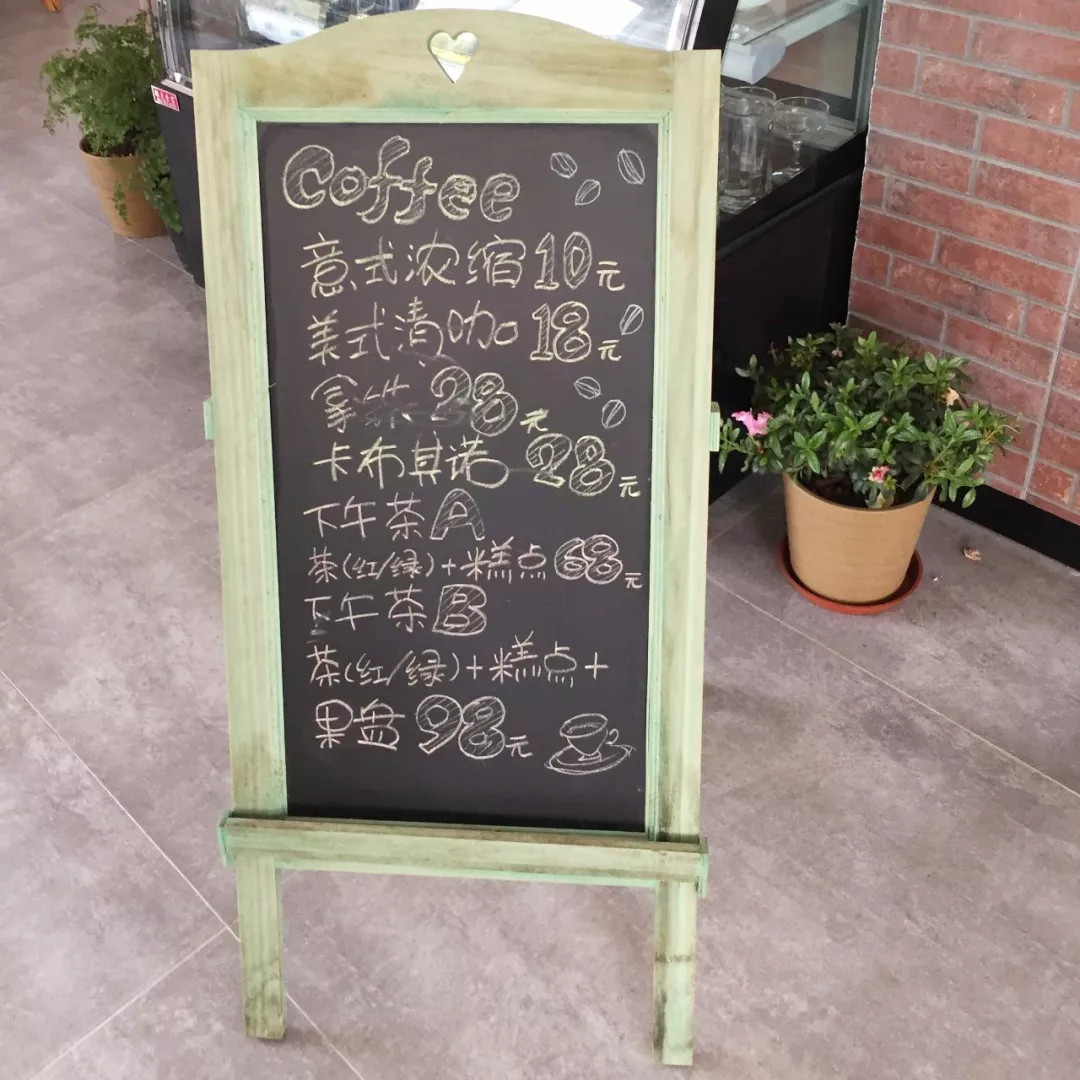 Coffee
意式浓缩10元
美式清咖18元
拿铁28元
卡布其诺28元
下午茶A
茶(红/绿)+糕点68元
下午茶B
茶(红/绿)+糕点+
果盘98元